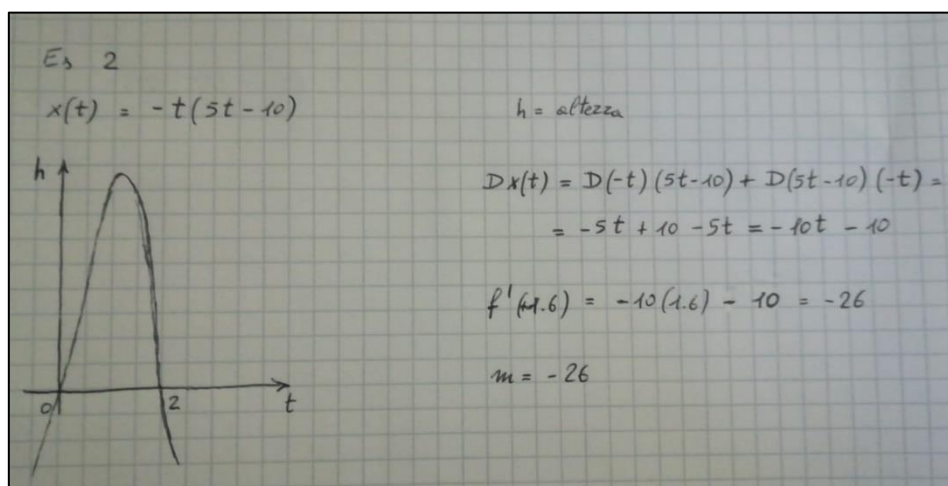 Es 2
x(t) = -t(5t-10)
h
0
2
t
h = altezza
Dx(t) = D(-t)(5t-10) + D(5t-10)(-t) =
= -5t + 10 - 5t = -10t - 10
f'(1.6) = -10(1.6) - 10 = -26
m = -26